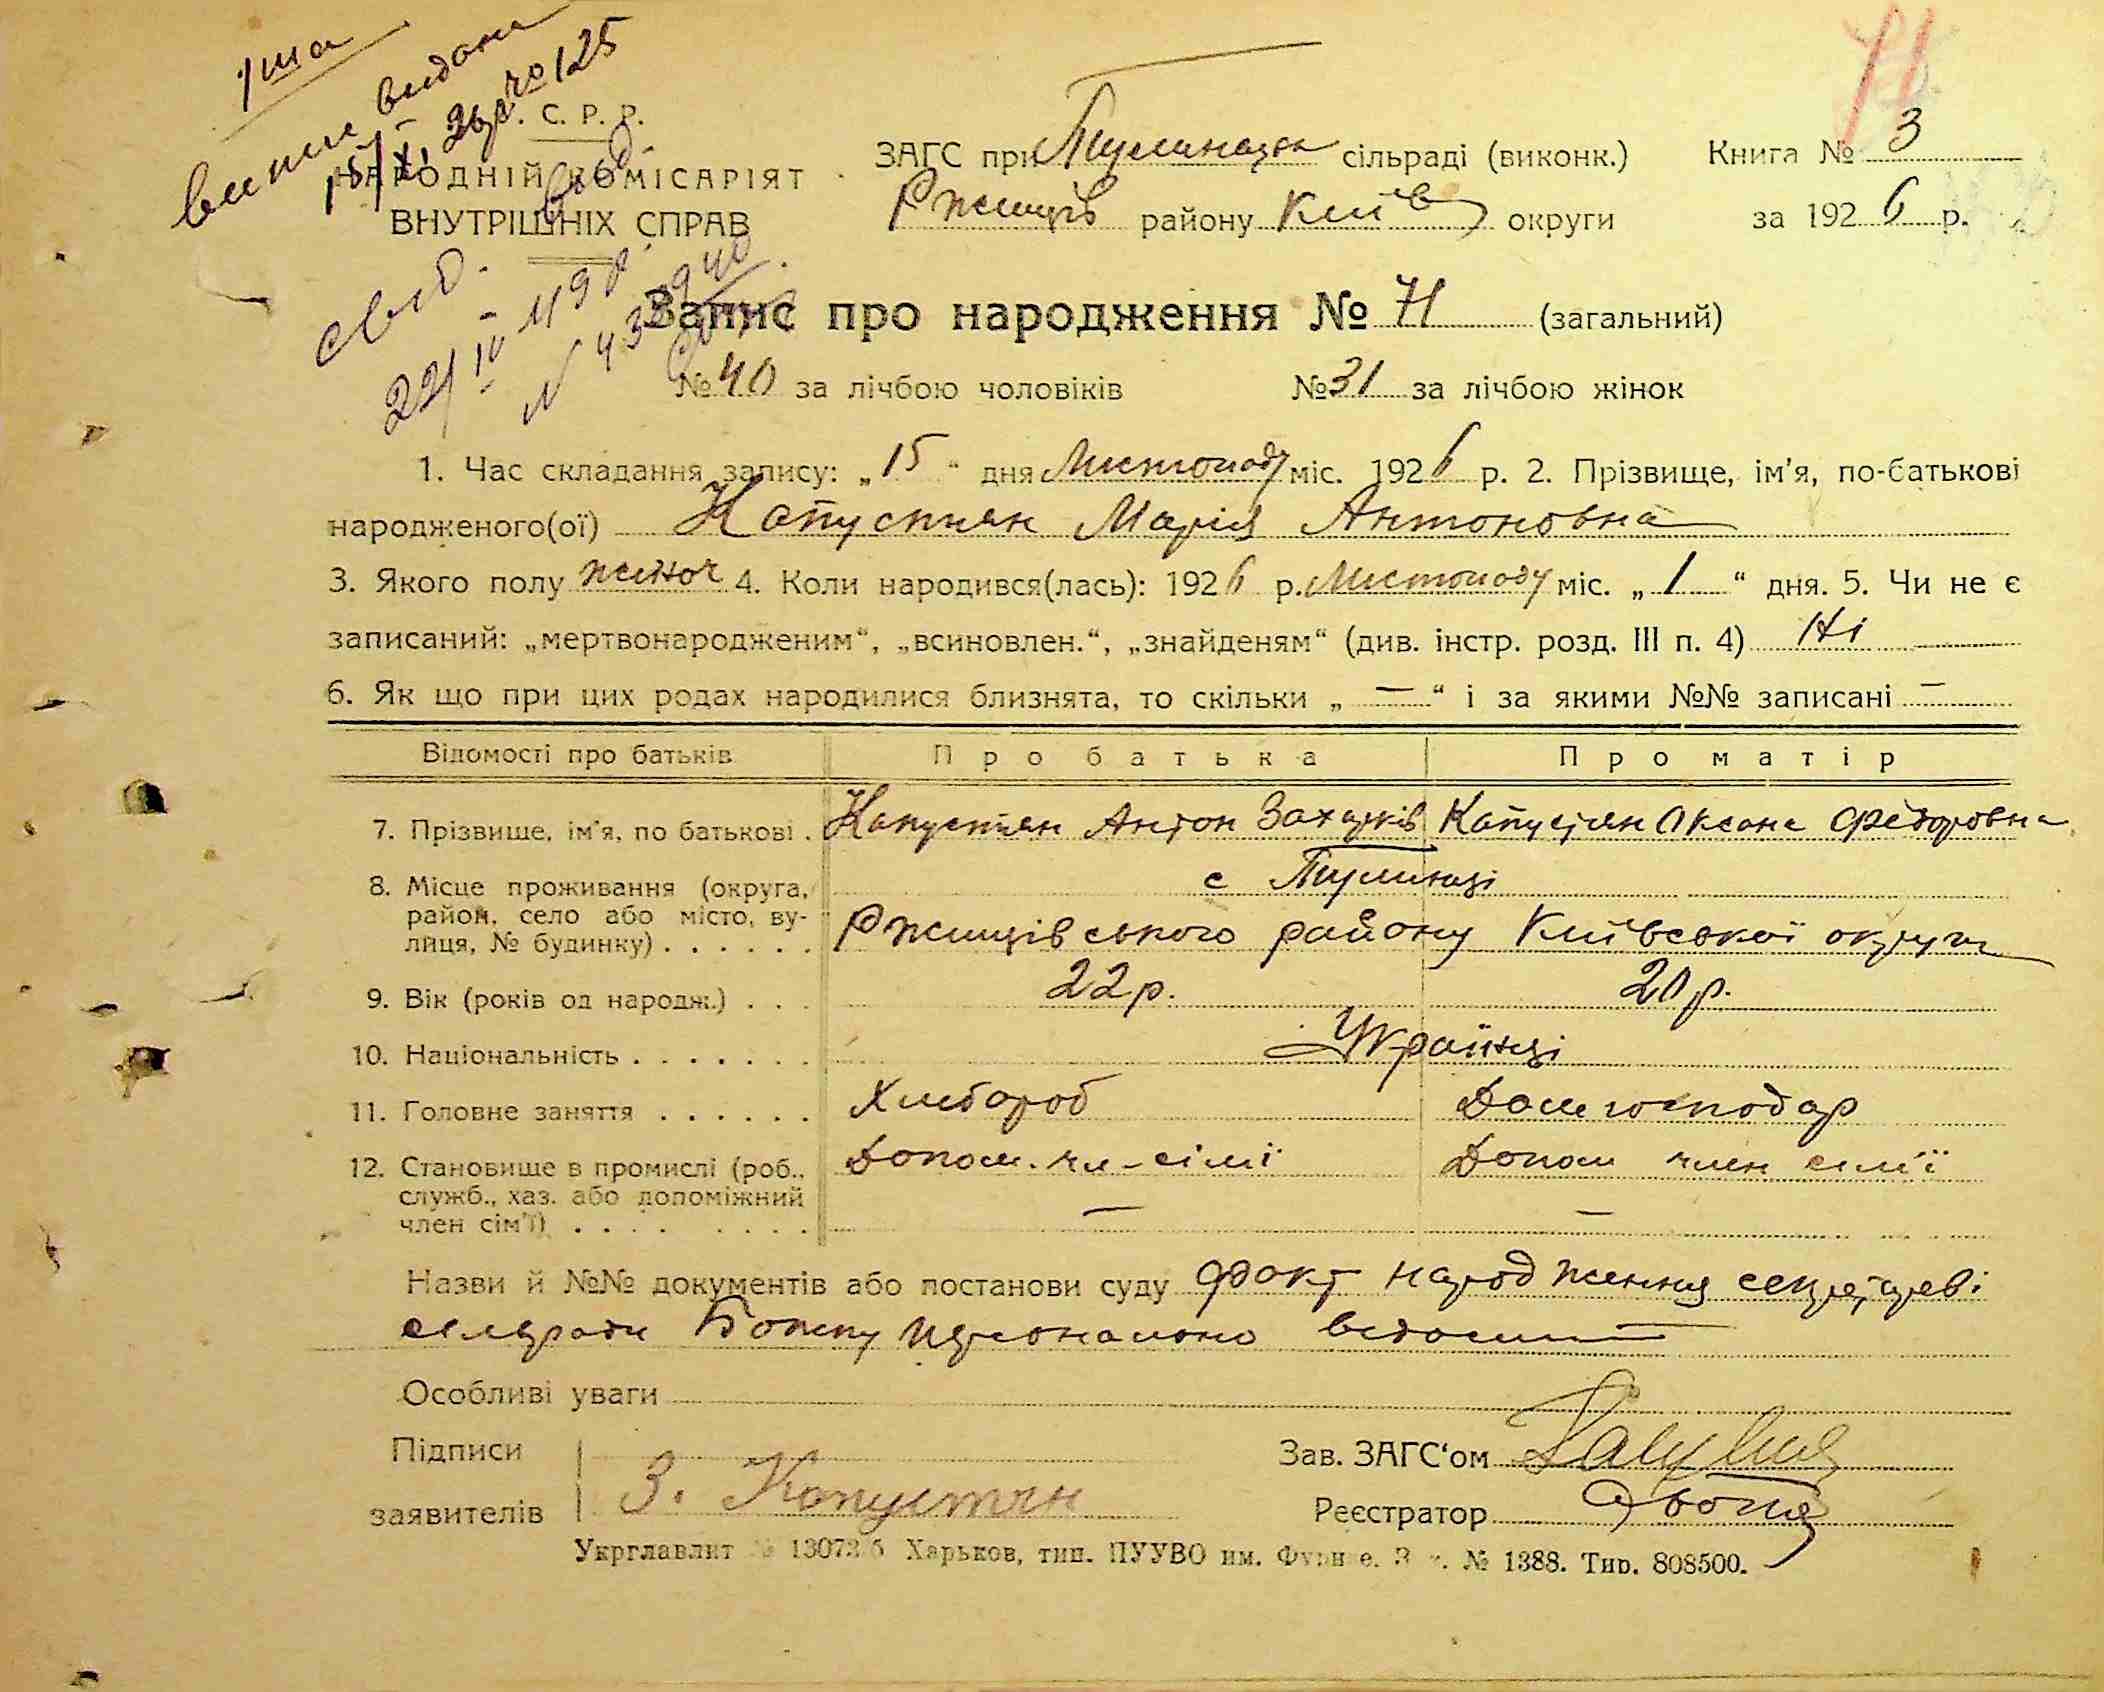 1ша
виписс видана
15/XI 26 р. № 125
С. Р. Р.
НАРОДНІЙ КОМІСАРІЯТ
ВНУТРІШНІХ СПРАВ
свид.
22/IV
ЗАГС при Тулинецьк сільраді (виконк.)
Книга № 3
Ржищів району Київ округи
за 1926 р.
71
Запис про народження № 71 (загальний)
№ 40 за лічбою чоловіків № 31 за лічбою жінок
1. Час складання запису: „15“ дня Листопаду міс. 1926 р. 2. Прізвище, ім'я, по-батькові
народженого(ої) Капустян Марія Антоновна
3. Якого полу жіноч 4. Коли народився(лась): 1926 р. Листопаду міс. „1“ дня. 5. Чи не є
записаний: „мертвонародженим“, „всиновлен.“, „знайденям“ (див. інстр. розд. III п. 4) Ні
6. Як що при цих родах народилися близнята, то скільки „—“ і за якими №№ записані —
Відомості про батьків Про батька Про матір
7. Прізвище, ім'я, по батькові . Капустян Антон Захарків Капустян Оксана Федоровна
8. Місце проживання (округа, с Тулинці
район, село або місто, ву-
лиця, № будинку) . . . . . . Ржищівського району Київської округи
9. Вік (років од народж.) . . . 22 р. 20 р.
10. Національність . . . . . . . Українці
11. Головне заняття . . . . . . Хлібороб Домгосподар
12. Становище в промислі (роб., Допом. чл-сімї Допом член сім'ї
служб., хаз. або допоміжний
член сім'ї) . . . . — —
Назви й №№ документів або постанови суду Факт народження секретареві
сельради Божку персонально
Особливі уваги
Підписи
Зав. ЗАГС'ом
заявителів З. Капустян
Реєстратор
Укрглавлит № 13073/б Харьков, тип. ПУУВО им. Фрунзе. З к. № 1388. Тир. 808500.